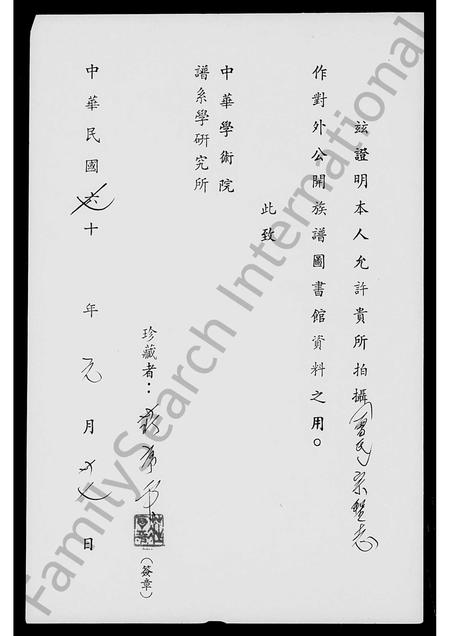 茲證明本人允許貴所拍攝
作對外公開族譜圖書館資料之用。
此致
中華學術院
譜系學研究所
珍藏者：
(簽章)
中華民國 十 年 元 月 日
FamilySearch International